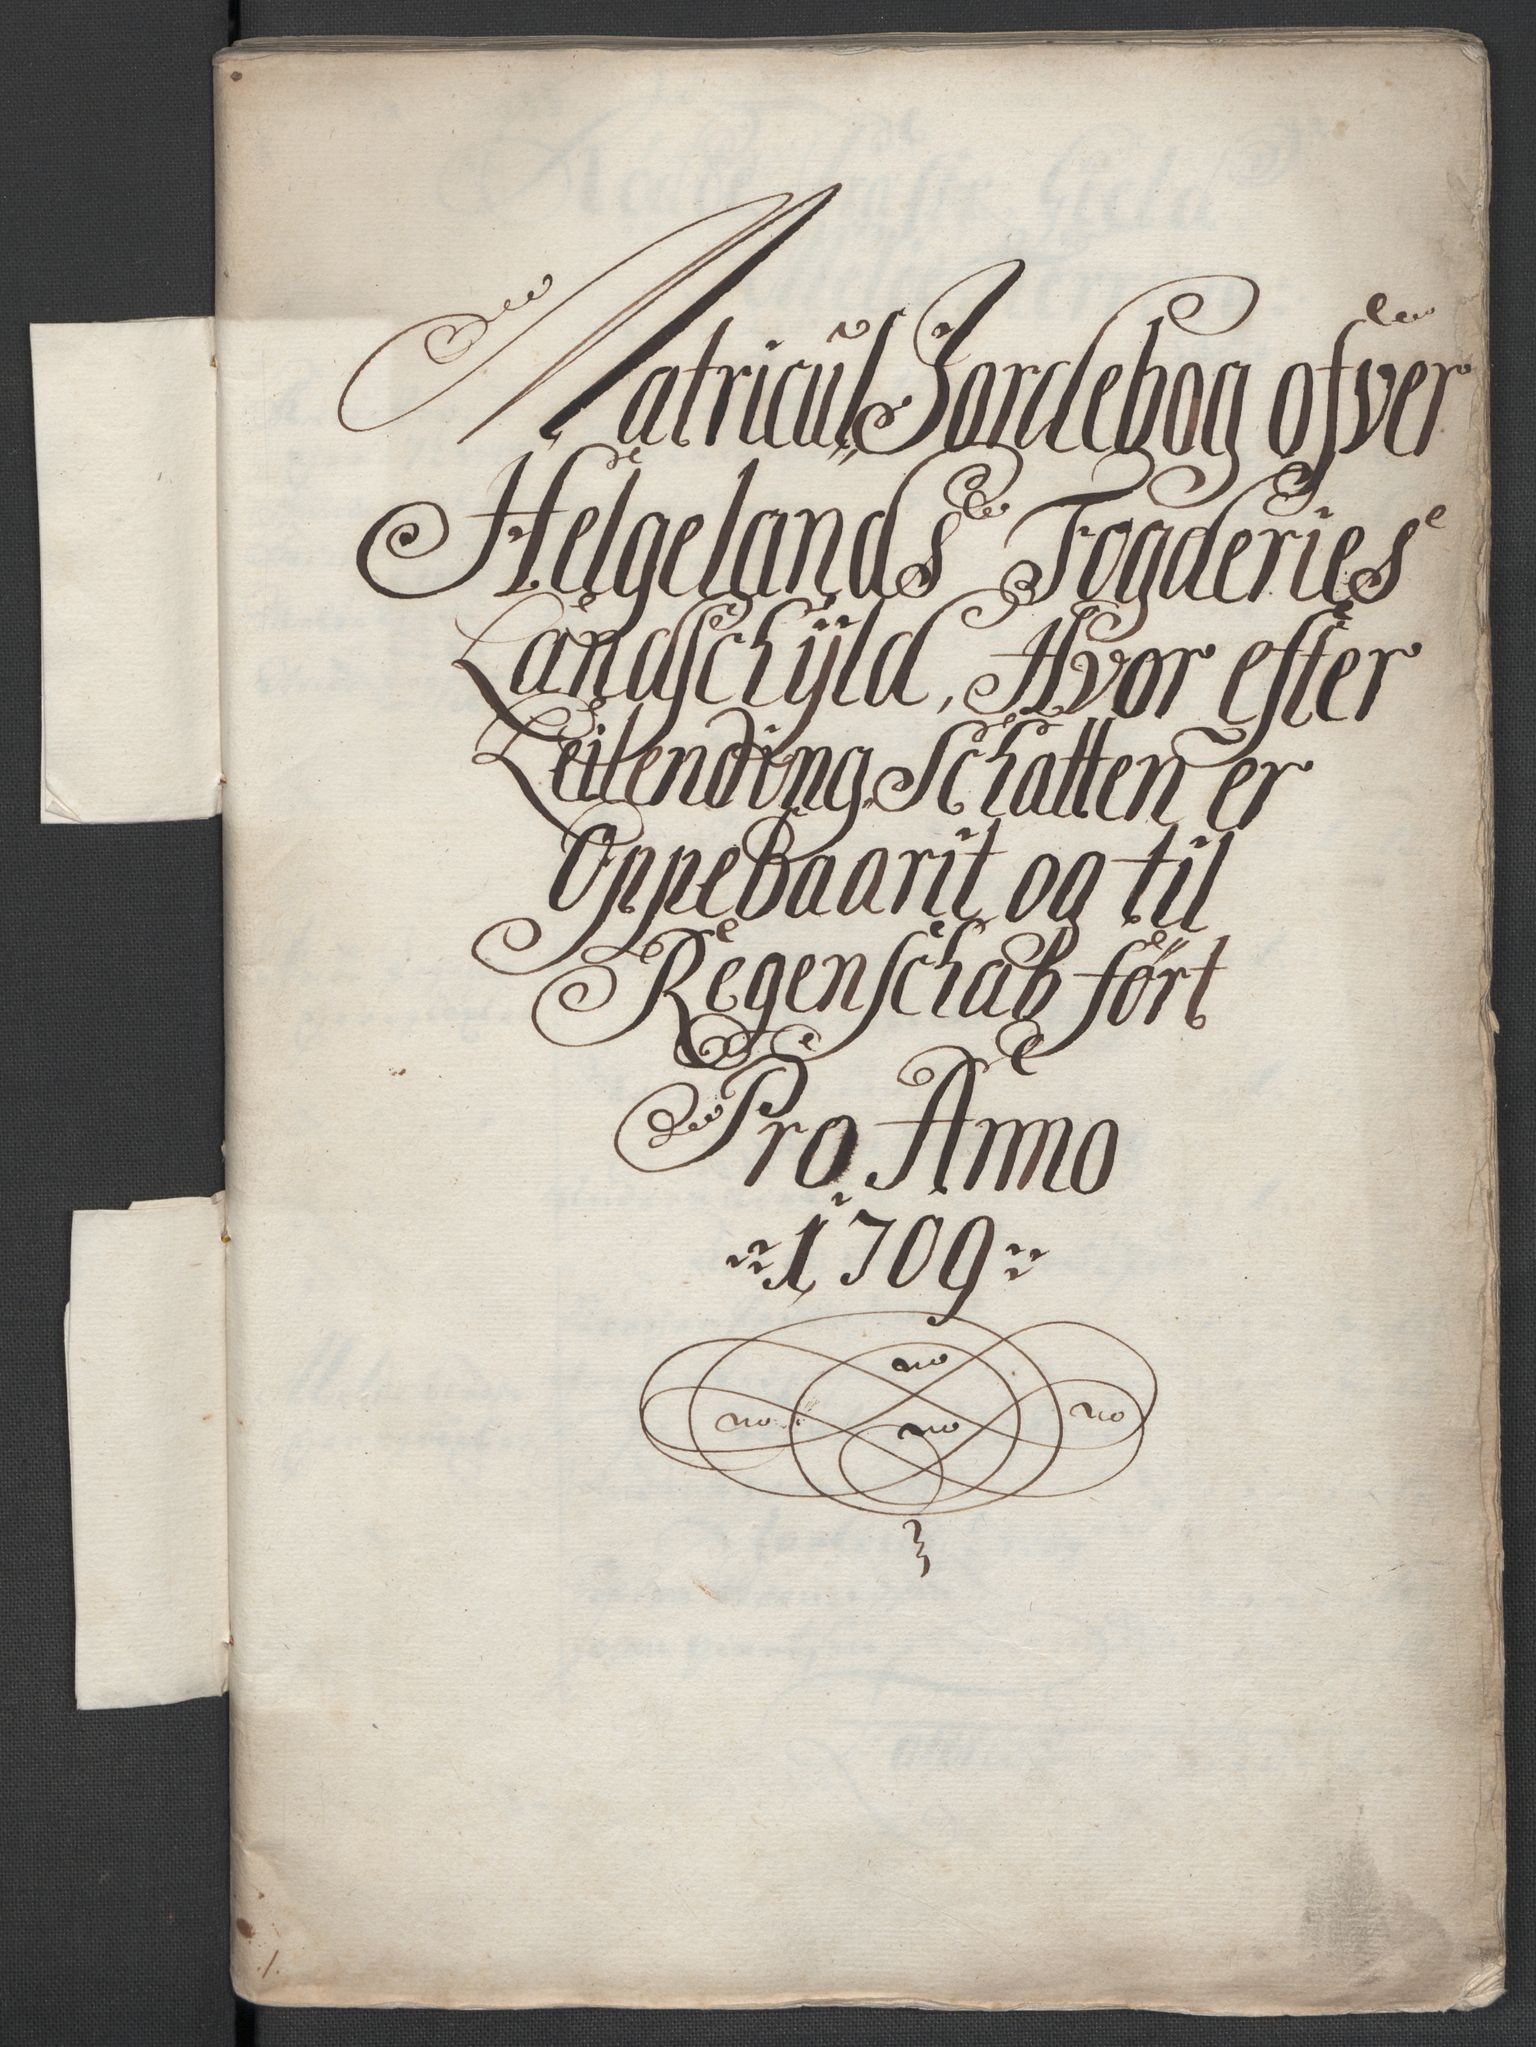 Matricul Jordebog ofver
Helgelands Fogderies
Landschÿld, Hvor efter
Leilending Schatten er
Oppebaarit og til
Regenschab ført
Pro Anno
1709
no
no no no
1.